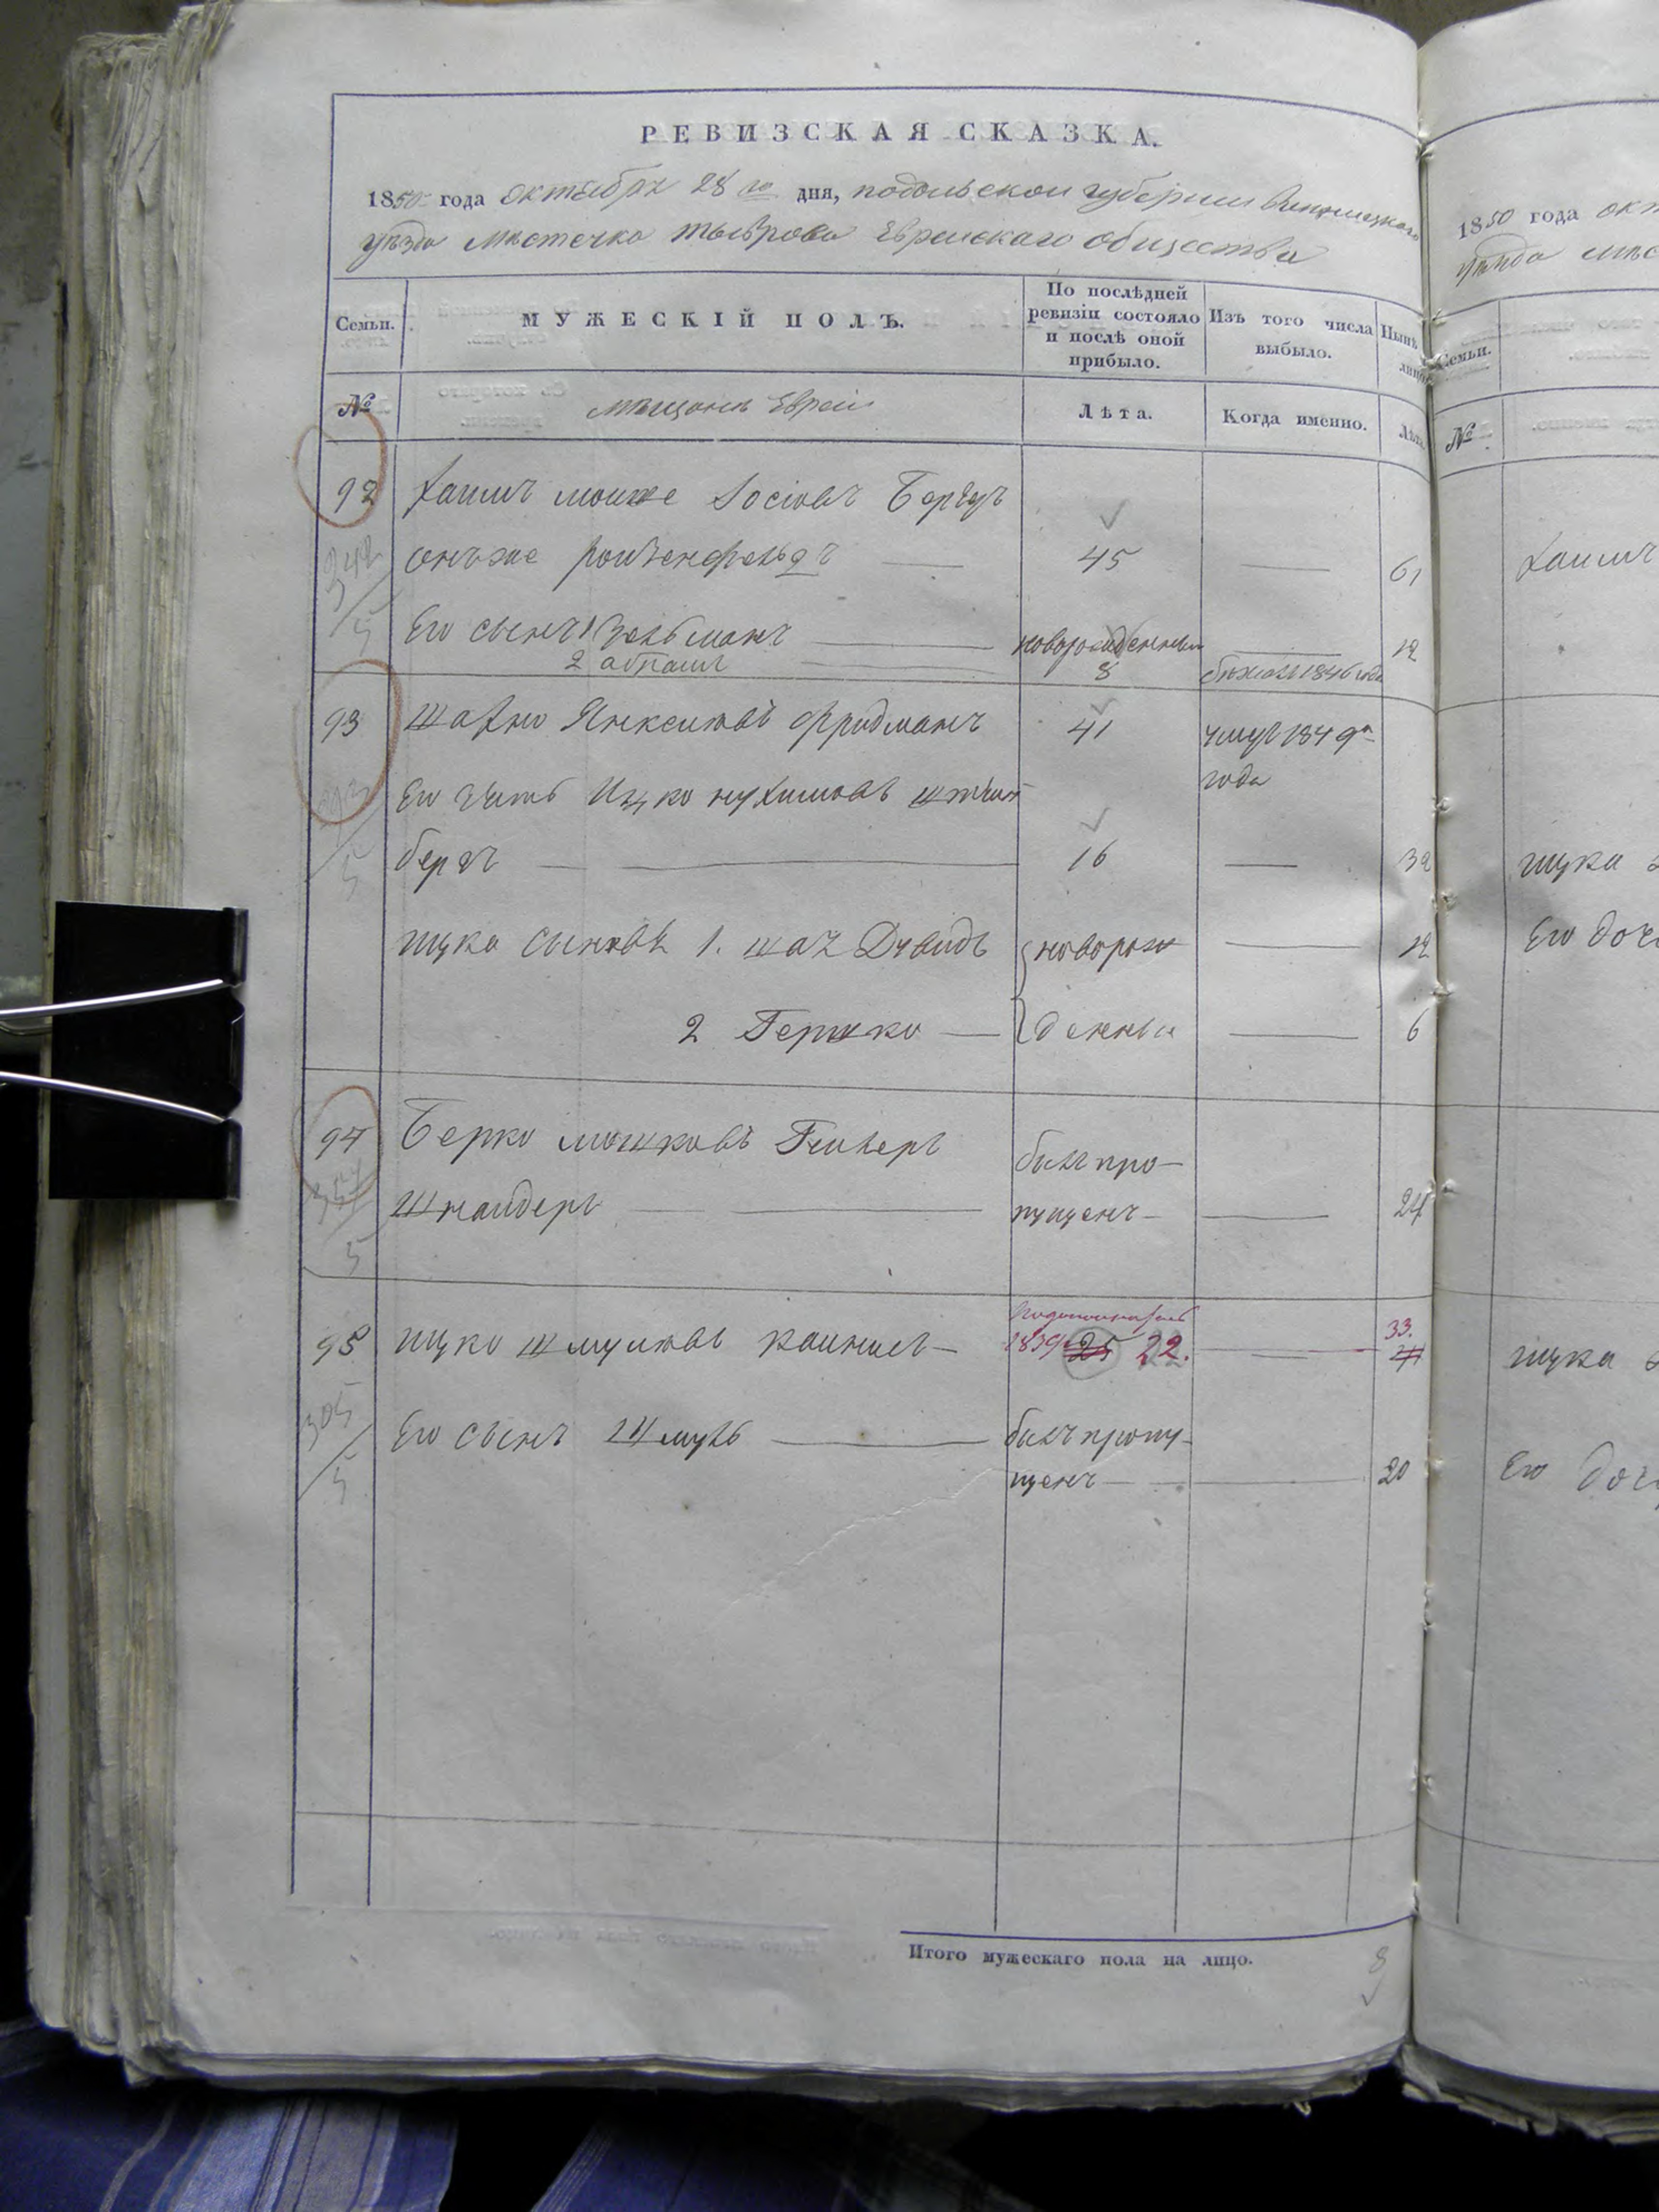 РЕВИЗСКАЯ СКАЗКА.
1850 года октября 28 го дня, подольской губернии Винницкаго
уѣзда мѣстечка тыврова Еврейскаго общества
Семьи.
МУЖЕСКІЙ ПОЛЪ.
По послѣдней ревизіи состояло и послѣ оной прибыло.
Изъ того числа выбыло.
Нынѣ
№
мѣщане Евреи
Лѣта.
Когда именно.
Лѣта
92 Хаимъ мошке Іосіовъ Бергеръ
онъже ройзенфельдъ 45 61
Его сынъ 1 Зельманъ новорожденный 12
2 абрамъ 8 бѣжалъ 1846 года
93 Шахно Янкелиовъ фридманъ 41 умеръ 1849
года
Его зять Ицко нухимовъ штейн
бергъ 16 32
ицка сыновья 1. шая Давидъ новорож 12
2 Гершко денныи 6
94 Берко мошковъ былъ про-
Шнайдеръ пущенъ 24
95 ицко шмулиовъ 1839 25 22. 33.
305
5
Его сынъ Шмуль былъ пропу-
щенъ 20
Итого мужескаго пола на лицо. 8
1850 года окт
уѣзда мѣс
Семьи.
№
Хаимъ
ицка
Его доч
ицка
Его доч